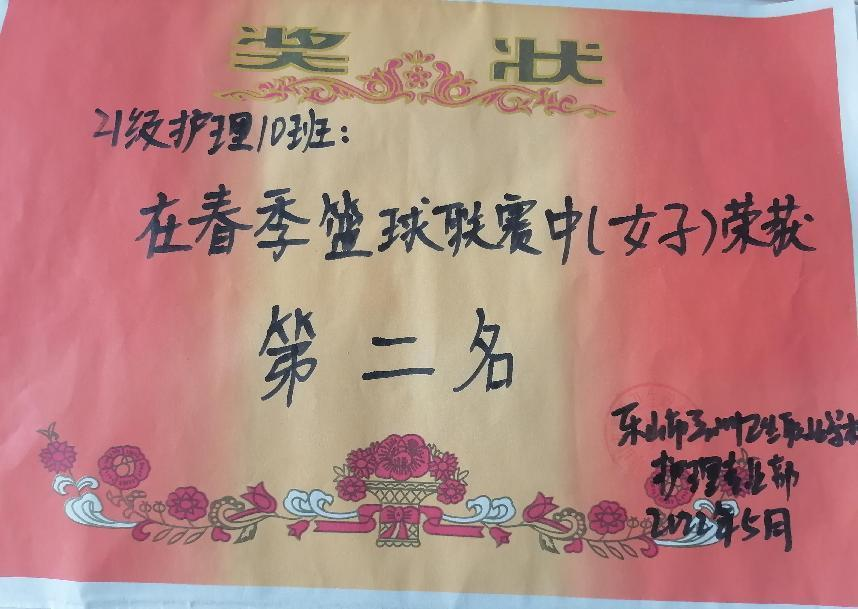 奖状
21级护理10班:
在春季篮球联赛中(女子)荣获
第二名
乐山市 卫生职业学校
护理专业部
2022年5月